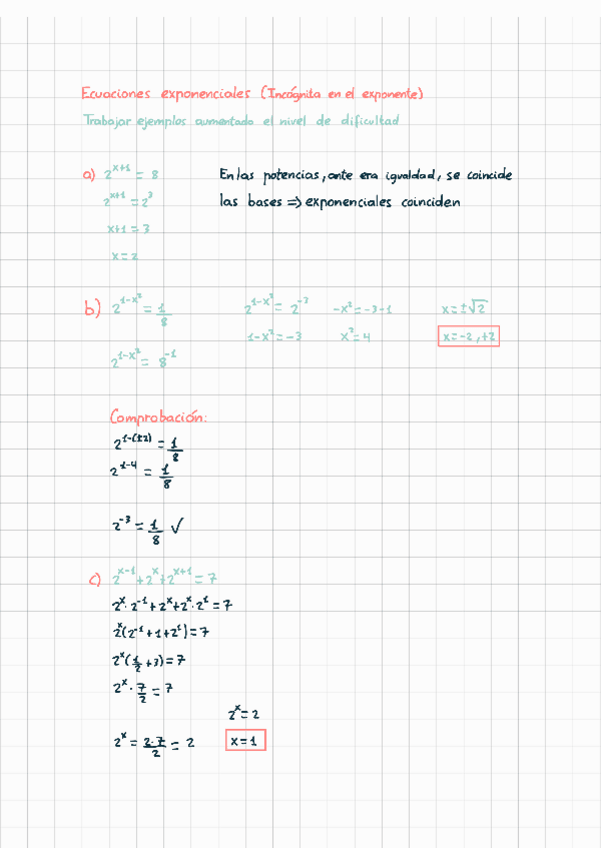 Ecuaciones exponenciales (Incógnita en el exponente)
Trabajar ejemplos aumentado el nivel de dificultad
a) 2^{x+1} = 8
2^{x+1} = 2^3
x+1 = 3
x = 2
En las potencias, ante era igualdad, se coincide
las bases ⇒ exponenciales coinciden
b) 2^{1-x^2} = 1/8
2^{1-x^2} = 8^{-1}
2^{1-x^2} = 2^{-3}
1-x^2 = -3
-x^2 = -3-1
x^2 = 4
x = ±√2
x = -2, +2
Comprobación:
2^{1-(±2)} = 1/8
2^{1-4} = 1/8
2^{-3} = 1/8 ✓
c) 2^{x-1} + 2^x + 2^{x+1} = 7
2^x · 2^{-1} + 2^x + 2^x · 2^1 = 7
2^x (2^{-1} + 1 + 2^1) = 7
2^x (1/2 + 3) = 7
2^x · 7/2 = 7
2^x = 2·7/2 = 2
2^x = 2
x = 1